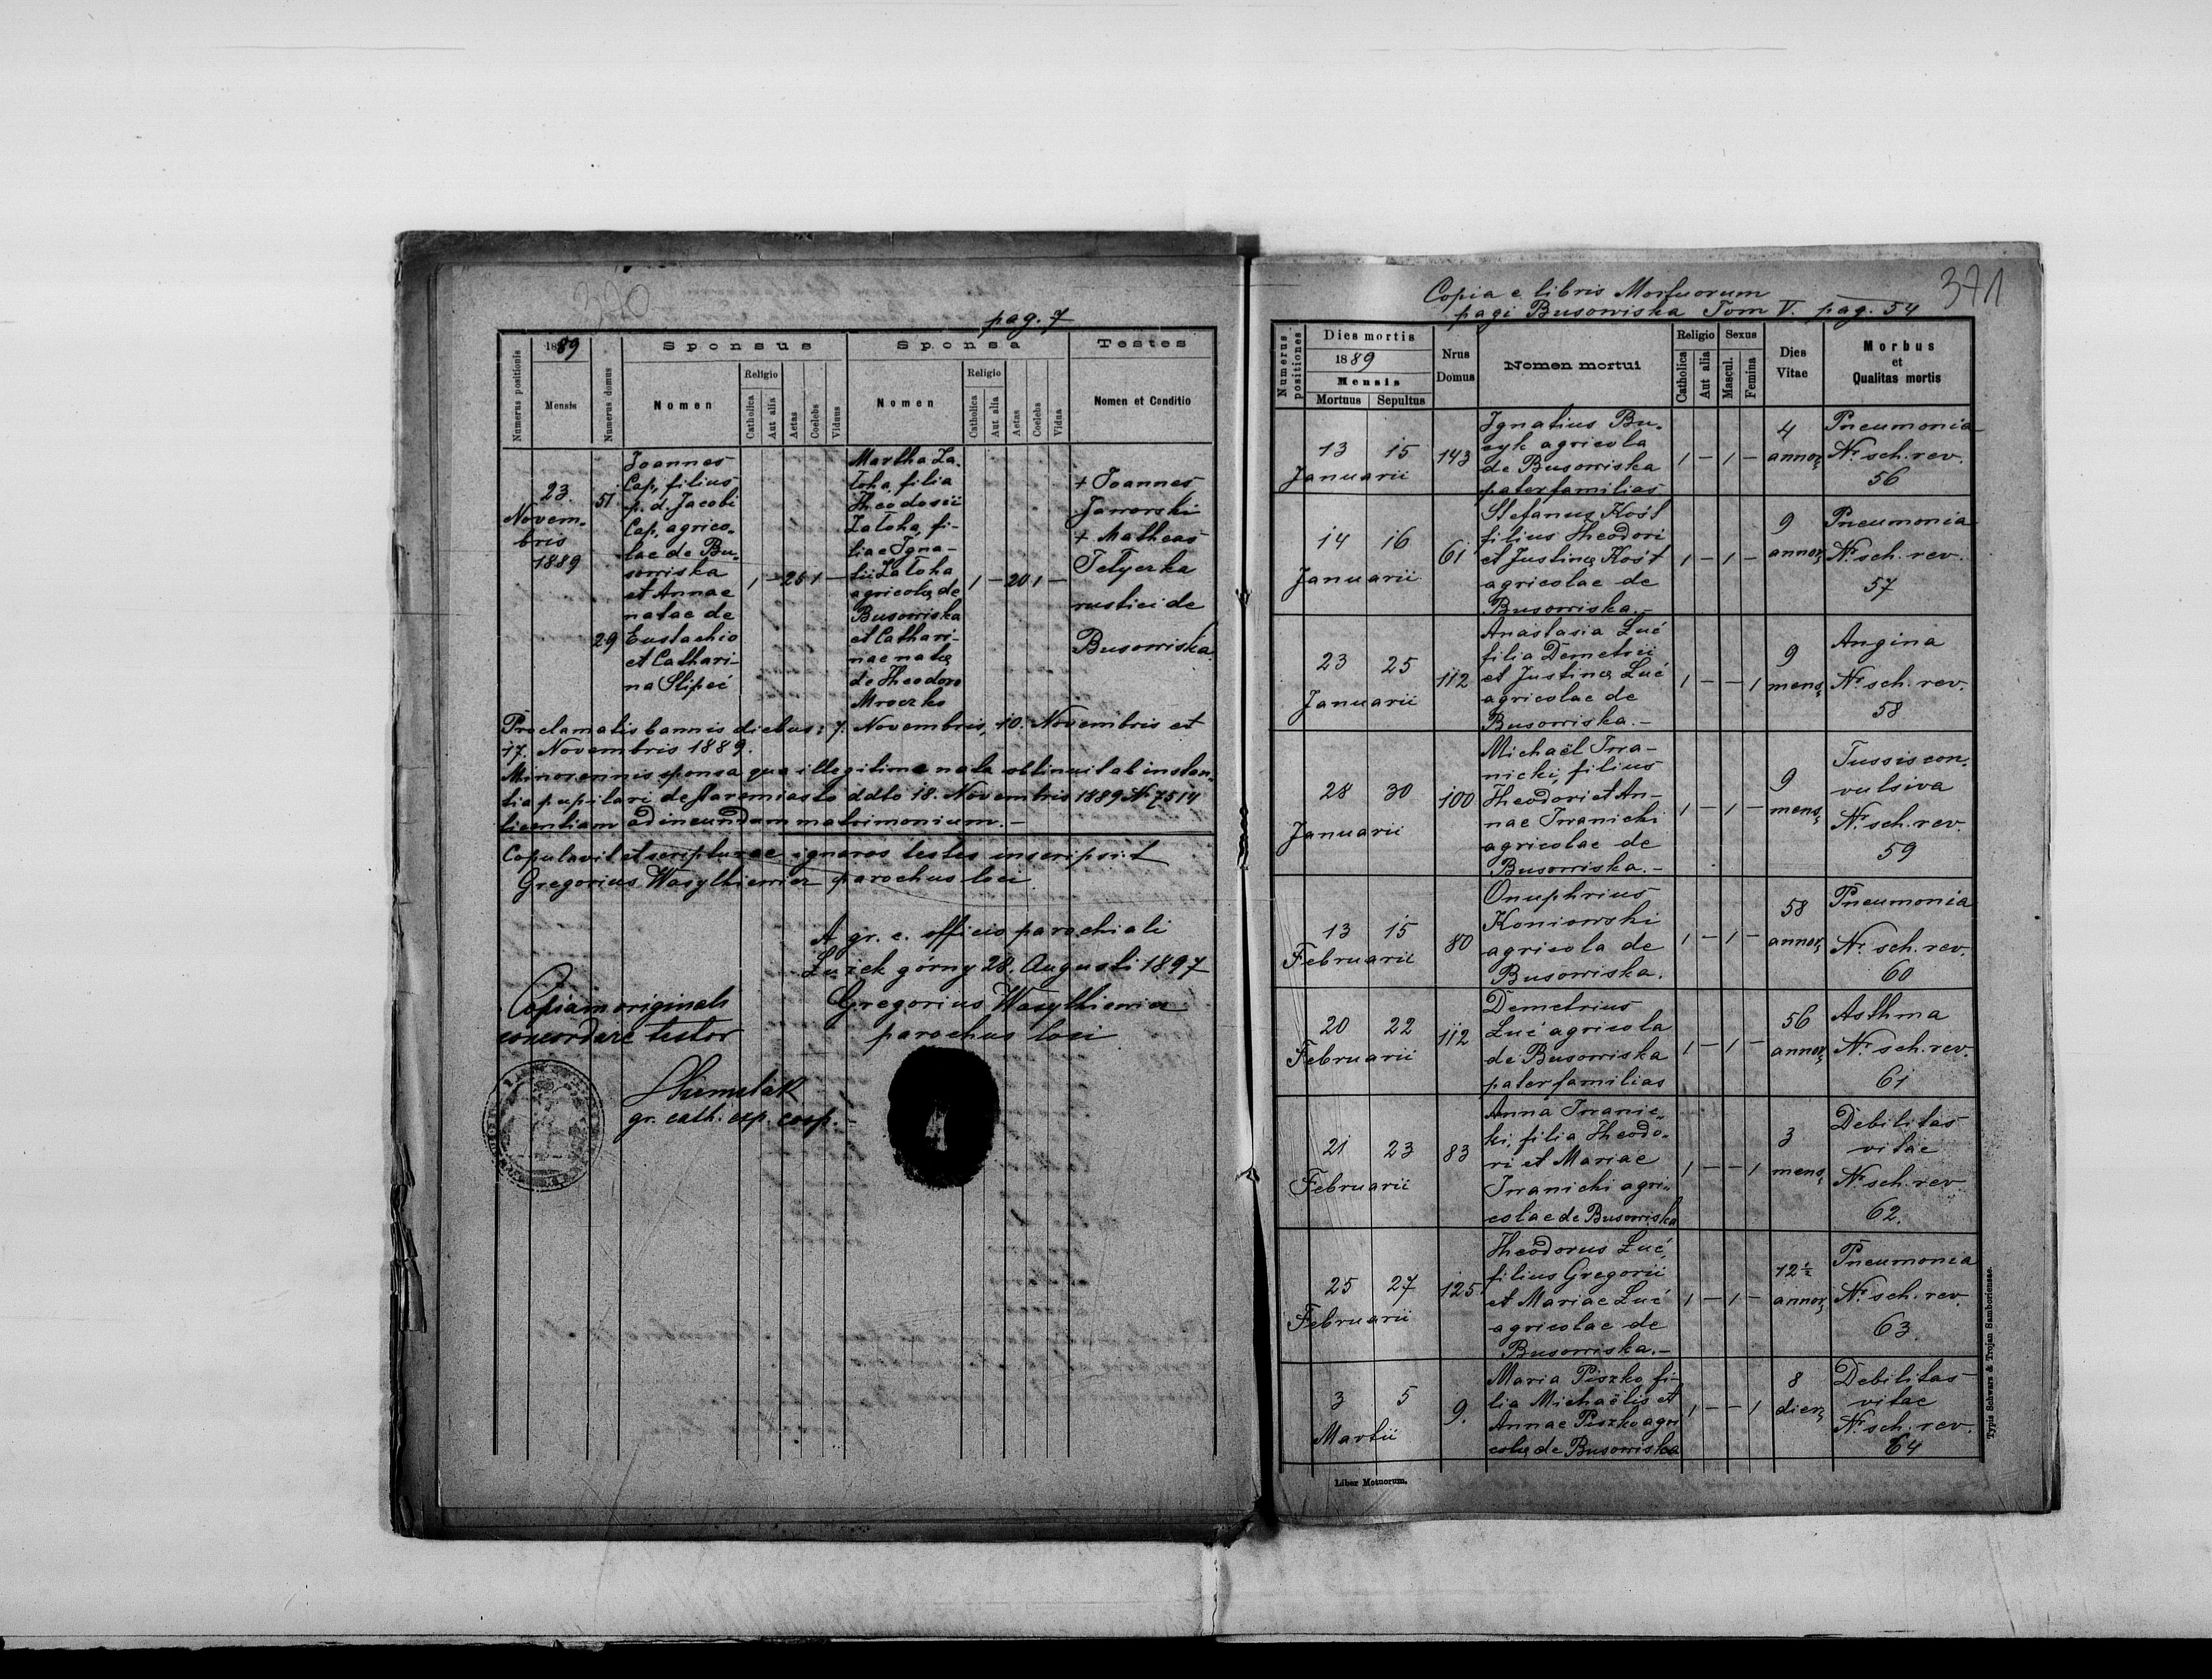 320
pag. 7
Numerus positionis
1889
Mensis
Numerus domus
Sponsus
Nomen
Religio
Catholica
Aut alia
Aetas
Coelebs
Viduus
Sponsa
Nomen
Religio
Catholica
Aut alia
Aetas
Coelebs
Vidua
Testes
Nomen et Conditio
23.
Novem-
bris
1889
51.
29
Joannes
Cap, filius
p. d. Jacobi
Cap, agrico-
lae de Bu-
sowiska
et Annae
natae de
Eustachio
et Cathari-
na Slipeć
1 — 26 1 —
Martha Za-
łoha, filia
Theodosii
Załoha, fi-
liae Igna-
tii Załoha
agricolae de
Busowiska
et Cathari-
nae natae
de Theodoro
Mroczko
1 — 20 1 —
+ Joannes
Jaworski
+ Matheas
Tetyczka
rustici de
Busowiska.
Proclamatis bannis diebus: 7. Novembris, 10. Novembris et
17. Novembris 1889.
Minorennis sponsa qua illegitime nata obtinuit ab instan-
tia pupilari de Staremiasto ddto 18. Novembris 1889 Nr 7514
licentiam ad ineundum matrimonium. —
Copulavit et scripturae ignaros testes inscripsit
Gregorius Wasylkiewicz parochus loci
A gr. c. officio parochiali
Łużek górny 28. Augusti 1897
Gregorius Wasylkiewicz
parochus loci
Copiam originali
concordare testor
gr. cath. exp. coop.
371
Copia e libris Mortuorum
pagi Busowiska Tom V. pag. 54
Numerus positiones
Dies mortis
1889
Mensis
Mortuus
Sepultus
Nrus
Domus
Nomen mortui
Religio
Catholica
Aut alia
Sexus
Mascul.
Femina
Dies
Vitae
Morbus
et
Qualitas mortis
13 15
Januarii
143
Ignatius Bu-
cyk agricola
de Busowiska
pater familias
1 — 1 —
4
annor.
Pneumonia
Nr. sch. rev.
56
14 16
Januarii
61
Stefanus Kośt
filius Theodori
et Justinae Kośt
agricolae de
Busowiska. —
1 — 1 —
9
annor.
Pneumonia
Nr. sch. rev.
57
23 25
Januarii
112
Anastasia Łuć
filia Demetrii
et Justinae Łuć
agricolae de
Busowiska. —
1 — — 1
9
mens.
Angina
Nr. sch. rev.
58
28 30
Januarii
100
Michaël Iwa-
nicki, filius
Theodori et An-
nae Iwanicki
agricolae de
Busowiska. —
1 — 1 —
9
mens.
Tussis con-
vulsiva
Nr. sch. rev.
59
13 15
Februarii
80
Onuphrius
Koniowski
agricola de
Busowiska.
1 — 1 —
58
annor.
Pneumonia
Nr. sch. rev.
60
20 22
Februarii
112
Demetrius
Łuć agricola
de Busowiska
pater familias
1 — 1 —
56
annor.
Asthma
Nr. sch. rev.
61
21 23
Februarii
83
Anna Iwanic-
ki, filia Theodo-
ri et Mariae
Iwanicki agri-
colae de Busowiska
1 — — 1
3
mens.
Debilitas
vitae
Nr. sch. rev.
62.
25 27
Februarii
125
Theodorus Łuć,
filius Gregorii
et Mariae Łuć
agricolae de
Busowiska. —
1 — 1 —
12 ½
annor.
Pneumonia
Nr. sch. rev.
63.
3 5
Martii
9.
Maria Piszko, fi-
lia Michaëlis et
Annae Piszko agri-
colae de Busowiska
1 — — 1
8
dier.
Debilitas
vitae
Nr. sch. rev.
64
Liber Motuorum.
Typis Schwarz & Trojan Samboriensae.